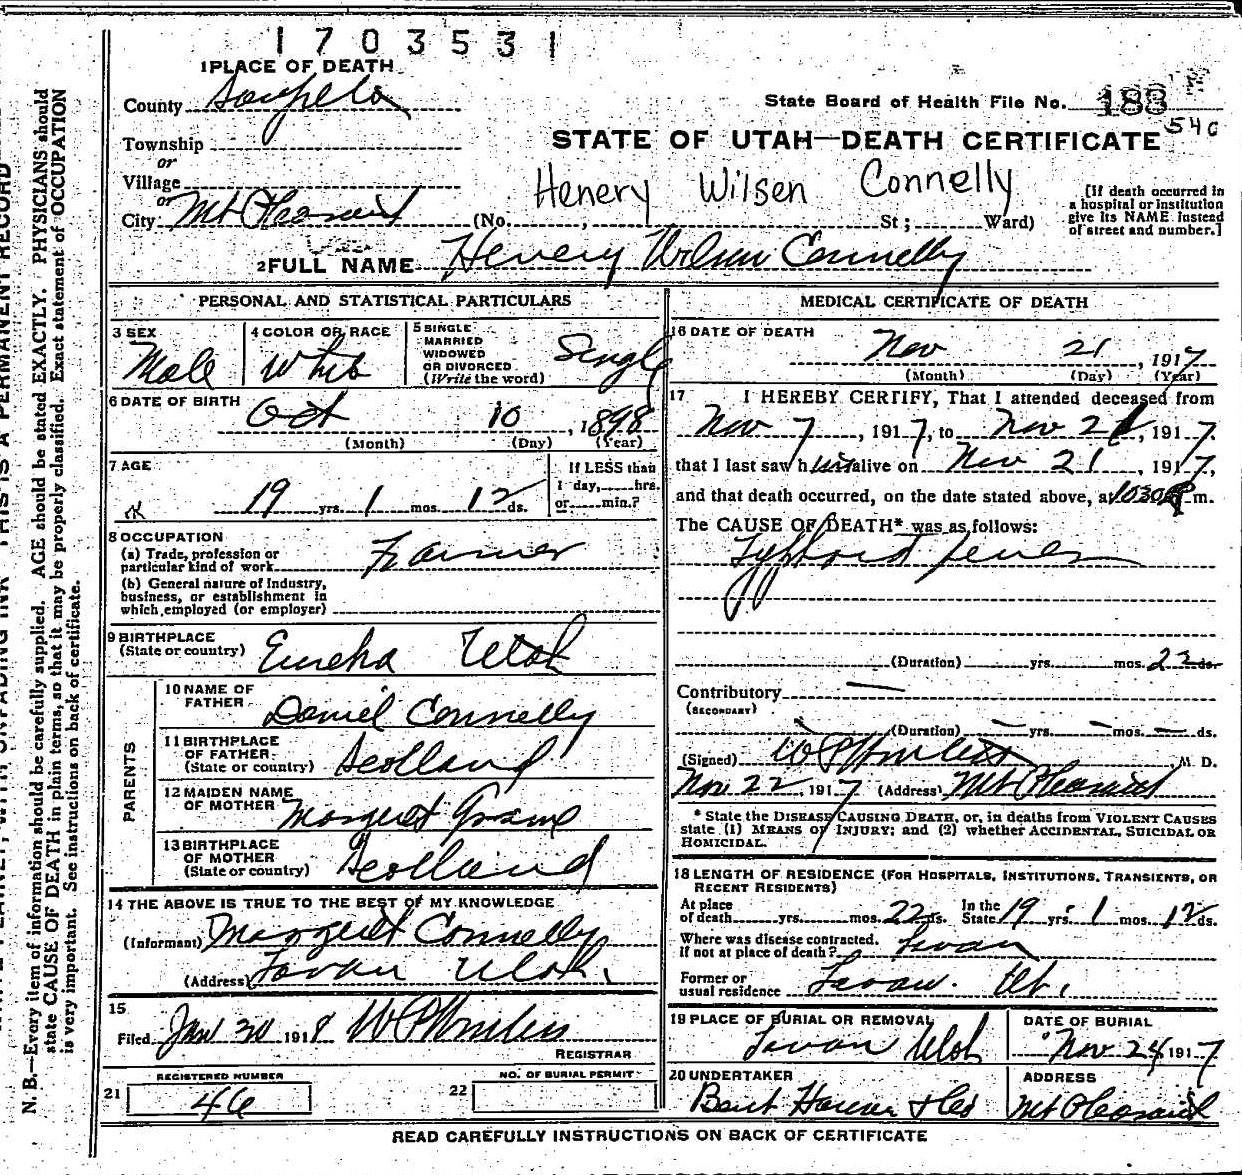 1703531
1 PLACE OF DEATH
County Sanpete
State Board of Health File No. 188
540
Township
or
Village
or
City Mt Pleasant
STATE OF UTAH—DEATH CERTIFICATE
Henery Wilsen Connelly
(No. , St; Ward)
[If death occurred in a hospital or institution give its NAME instead of street and number.]
2 FULL NAME Henery Wilsen Connelly
PERSONAL AND STATISTICAL PARTICULARS
3 SEX
Male
4 COLOR OR RACE
White
5 SINGLE MARRIED WIDOWED OR DIVORCED (Write the word)
Single
6 DATE OF BIRTH
Oct 10, 1898
(Month) (Day) (Year)
7 AGE
19 yrs. 1 mos. 12 ds.
If LESS than 1 day, hrs. or min.?
8 OCCUPATION
(a) Trade, profession or particular kind of work Farmer
(b) General nature of Industry, business, or establishment in which employed (or employer)
9 BIRTHPLACE
(State or country) Eureka Utah
PARENTS
10 NAME OF FATHER Daniel Connelly
11 BIRTHPLACE OF FATHER (State or country) Scotland
12 MAIDEN NAME OF MOTHER Margaret
13 BIRTHPLACE OF MOTHER (State or country) Scotland
14 THE ABOVE IS TRUE TO THE BEST OF MY KNOWLEDGE
(Informant) Margaret Connelly
(Address) Levan Utah.
15
Filed Jan 30 1918
REGISTRAR
REGISTERED NUMBER
21 46
NO. OF BURIAL PERMIT
22
MEDICAL CERTIFICATE OF DEATH
16 DATE OF DEATH
Nov 21, 1917
(Month) (Day) (Year)
17 I HEREBY CERTIFY, That I attended deceased from
Nov 7, 1917, to Nov 21, 1917.
that I last saw him alive on Nov 21, 1917,
and that death occurred, on the date stated above, at 1030 P m.
The CAUSE OF DEATH* was as follows:
Typhoid fever
(Duration) yrs. mos. 22 ds.
Contributory —
(SECONDARY)
(Duration) — yrs. — mos. — ds.
(Signed) M. D.
Nov 22, 1917 (Address) Mt Pleasant
* State the DISEASE CAUSING DEATH, or, in deaths from VIOLENT CAUSES
state (1) MEANS OF INJURY; and (2) whether ACCIDENTAL, SUICIDAL OR
HOMICIDAL.
18 LENGTH OF RESIDENCE (FOR HOSPITALS, INSTITUTIONS, TRANSIENTS, OR
RECENT RESIDENTS)
At place of death yrs. mos. 22 ds. In the State 19 yrs. 1 mos. 12 ds.
Where was disease contracted, if not at place of death? Levan
Former or usual residence Levan. Ut.
19 PLACE OF BURIAL OR REMOVAL
Levan Utah
DATE OF BURIAL
Nov 24 1917
20 UNDERTAKER
ADDRESS
Mt Pleasant
READ CAREFULLY INSTRUCTIONS ON BACK OF CERTIFICATE
N. B.—Every item of information should be carefully supplied. AGE should be stated EXACTLY. PHYSICIANS should
state CAUSE OF DEATH in plain terms, so that it may be properly classified. Exact statement of OCCUPATION
is very important. See instructions on back of certificate.